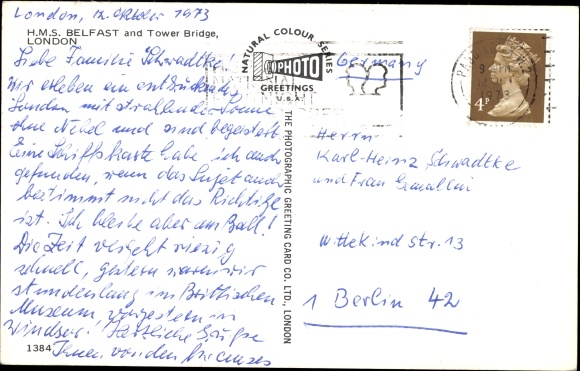 London, 12. Oktober 1973
H.M.S. BELFAST and Tower Bridge,
LONDON
Liebe Familie Schwadtke!
Wir erleben ein entzückendes
London mit strahlender Sonne
ohne Nebel und sind begeistert.
Eine Schiffskarte habe ich auch
gefunden, wenn das Sujet auch
bestimmt nicht das Richtige
ist. Ich bleibe aber am Ball!
Die Zeit vergeht riesig
schnell, gestern waren wir
stundenlang im Britischen
Museum, vorgestern in
Windsor. Herzliche Grüße
Ihnen von den
1384
NATURAL COLOUR SERIES
PHOTO
GREETINGS
U.S.A.
THE PHOTOGRAPHIC GREETING CARD CO. LTD., LONDON
Germany
4P
1973
Herrn
Karl-Heinz Schwadtke
und Frau
Wittekindstr. 13
1 Berlin 42